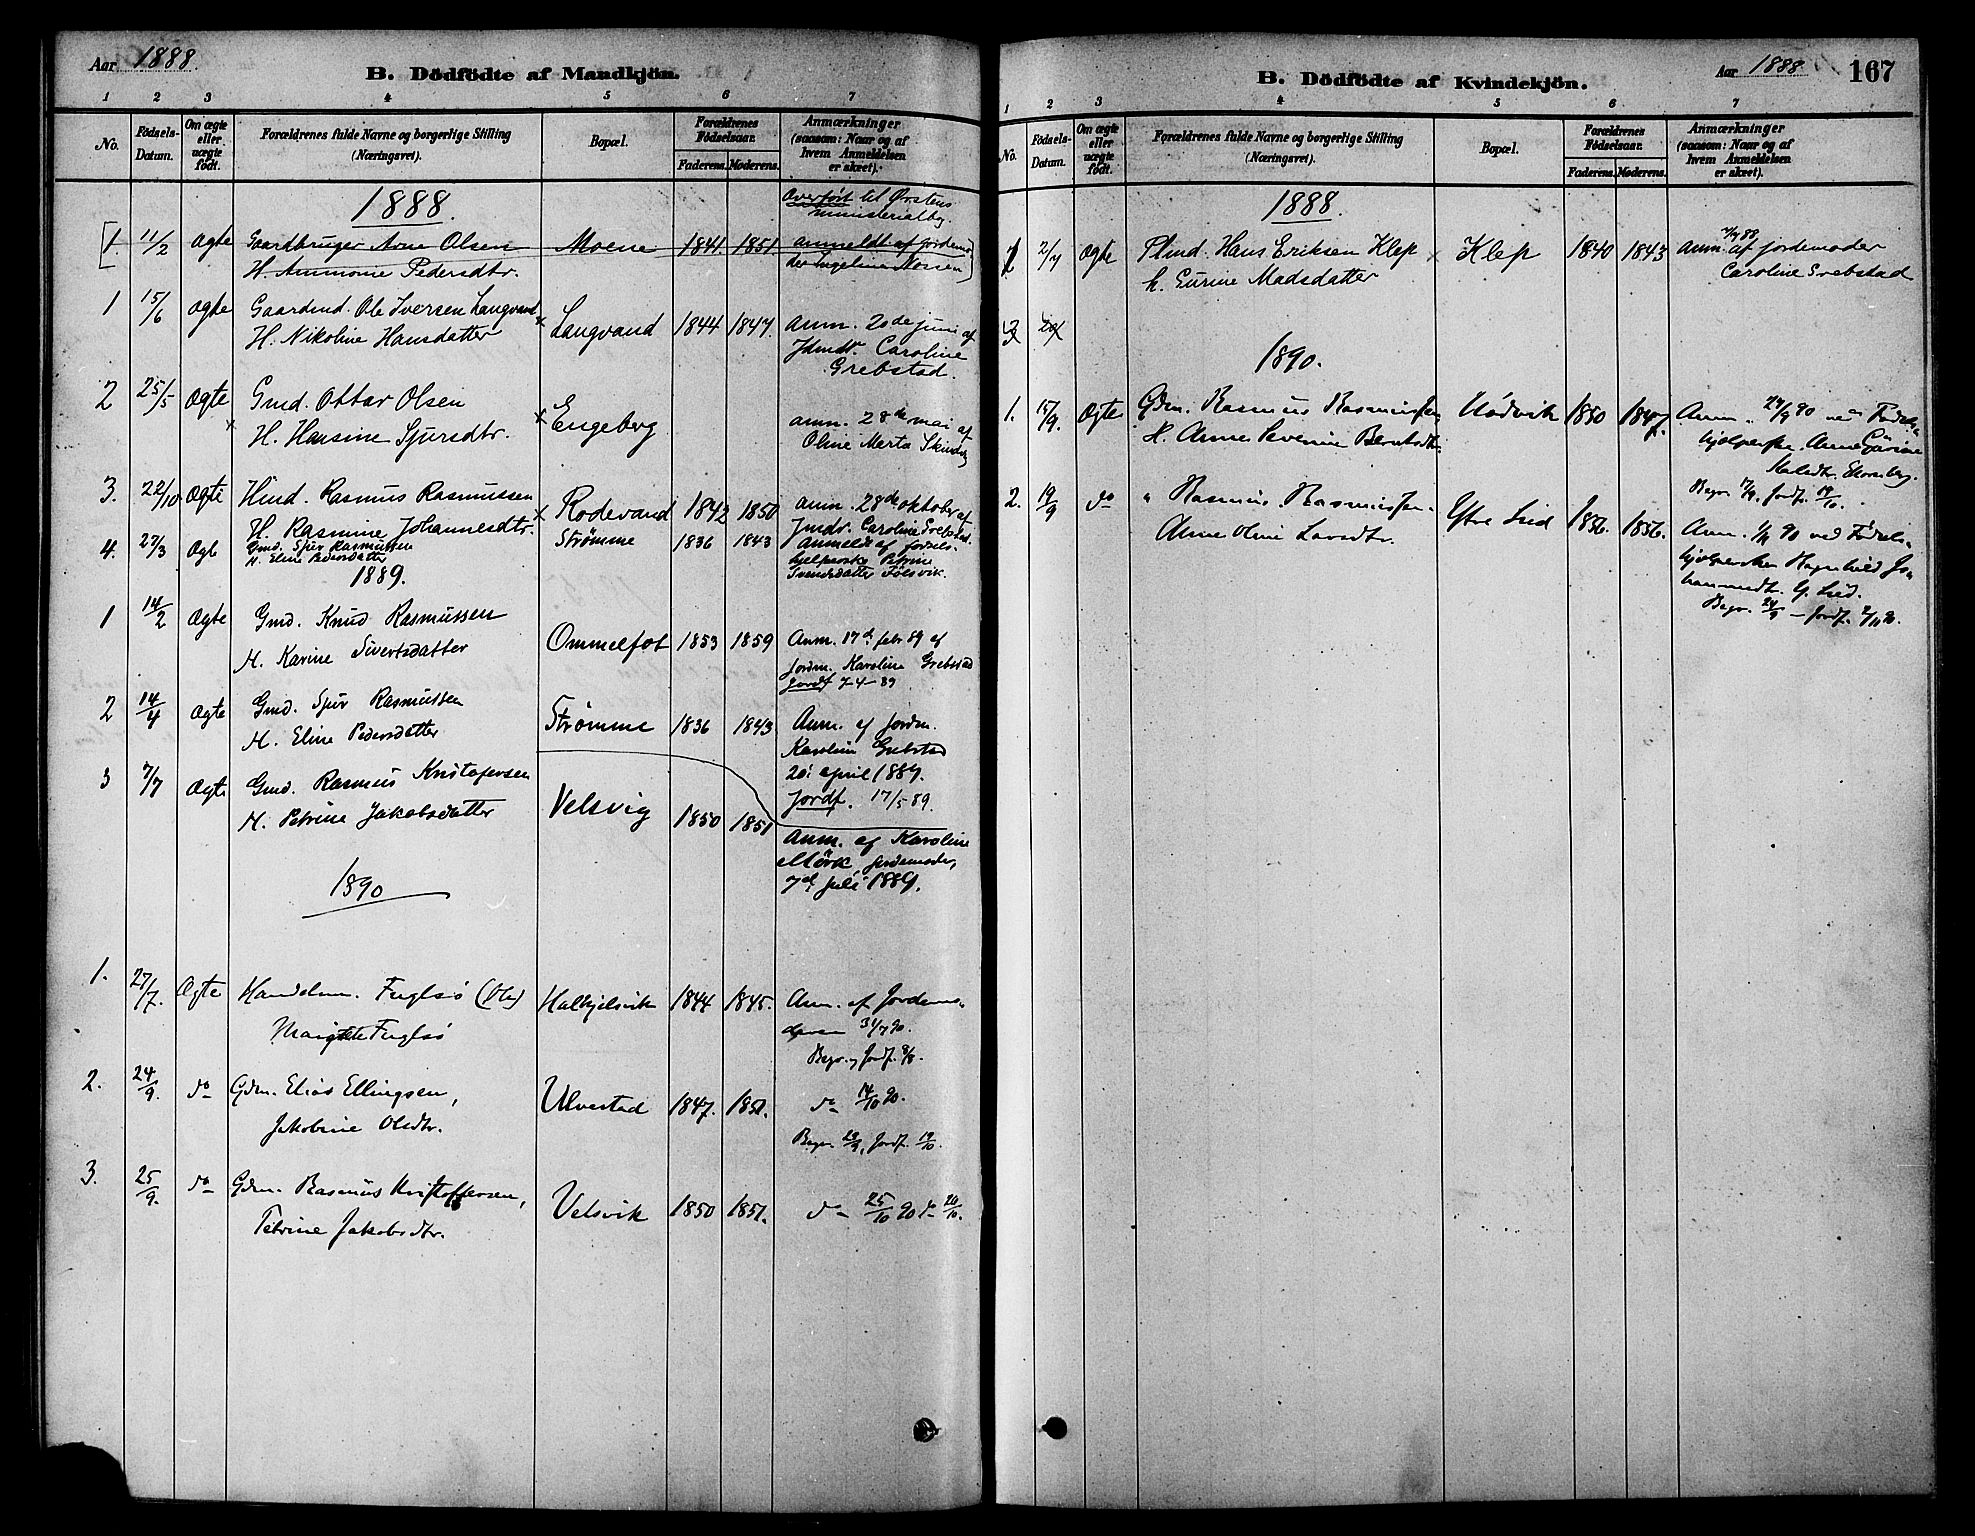 Aar 1888.
B. Dödfödte af Mandkjön.
1 2 3 4 5 6 7
No. Födsels-Datum. Om ægte eller uægte födt. Forældrenes fulde Navne og borgerlige Stilling (Næringsvei). Bopæl. Forældrenes Födselsaar. Faderens. Moderens. Anmærkninger (saasom: Naar og af hvem Anmeldelsen er skeet).
1888.
Overført til Ørstens
ministerialbog.
1. 11/2 Ægte Gaardbruger Arne Olsen Moene 1841. 1851 anmeldt af jordemo-
H. Ammonie Pedersdtr. der Ingeline Nossen
1 15/6 Ægte Gaardmd. Ole Iversen Langvand
H. Nikoline Hansdatter Langvand 1844 1847. anm. 20de juni af
Jdmdr. Caroline
Grebstad.
2 25/5 Ægte Gmd. Ottar Olsen
H. Hansine Sjursdtr. Engeberg anm. 28de mai af
Oline Merta
3. 22/10 Ægte Hmd. Rasmus Rasmussen
H. Rasmine Johannesdtr. Rodevand 1842 1850 anm. 28de oktober af
Jmdr. Caroline Grebstad.
4. 27/3 Ægt Gmd. Sjur Rasmussen Strømme 1836 1843 Anmeldt af fødsels-
H. Eline Pedersdatter hjelperske Petrine
Svendsdatter Følsvik.
1889.
1 14/2 Ægte Gmd. Knud Rasmussen
H. Karine Sivertsdatter Ommelfot 1853 1859 Anm. 17d febr 89 af
Jordm. Karoline Grebstad
Jordf 7-4-89
2 14/4 Ægte Gmd. Sjur Rasmussen
H. Eline Pedersdatter Strømme 1836 1843 Anm. af jordm.
Karoline Grebstad
20: april 1889.
Jordf. 17/5 89.
3 7/7 Ægte Gmd. Rasmus Kristofersen
H. Petrine Jakobsdatter Velsvig 1850 1851 Anm. af Karoline
Mörk, jordemoder,
7d juli 1889.
1890
1. 27/7. Ægte Handelsm. Fuglsö (Ole) Halkjelsvik 1844 1845. Anm. af Jordemo-
Margrete Fuglsö deren 31/7 90.
Begr. og Jordf. 3/8.
2. 24/9. do Gdm. Elias Ellingsen, Ulvestad 1847. 1851. do 14/10 90.
Jakobine Olsdtr. Begr. 29/9, Jordf. 19/10
3. 25/9. do Gdm. Rasmus Kristoffersen, Velsvik 1850 1851. do 25/10 90 do 26/10.
Petrine Jakobsdtr.
Aar 1888 167
B. Dödfödte af Kvindekjön.
1 2 3 4 5 6 7
No. Födsels-Datum. Om ægte eller uægte födt. Forældrenes fulde Navne og borgerlige Stilling (Næringsvei). Bopæl. Forældrenes Födselsaar. Faderens. Moderens. Anmærkninger (saasom: Naar og af hvem Anmeldelsen er skeet).
1888.
1 2/7 Ægte Plmd. Hans Eriksen Klep Klep 1840 1843 anm. af jordemoder
h. Gurine Madsdatter Caroline Grebstad
1890.
1. 15/9. Ægte Gdm. Rasmus Rasmussen, Nödvik 1850 1847. Anm. 24/9 90 ved Födsels-
H. Anne Severine Berntsdtr. hjelperske. Anne
Begr. 17/9. Jordf.
2. 19/9 do " Rasmus Rasmussen. Ytre Lid 1856. 1856. Anm. 90 ved Födsels-
Anne Oline Larsdtr. hjelpersken Ragnhild Jo-
hannesdt. Y. Lid.
Begr. 24/9 - Jordf. 2/11 90.